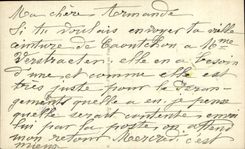 Ma chère Armande
Si tu voulais envoyer ta vieille
ceinture de Caoutchou à Mme
Verstraeten elle en a besoin
d'une et comme elle est
très juste pour le
gements qu'elle a eu, je pense
qu'elle serait contente envoie
lui par la poste on attend
mon retour Mercredi c'est
mieux